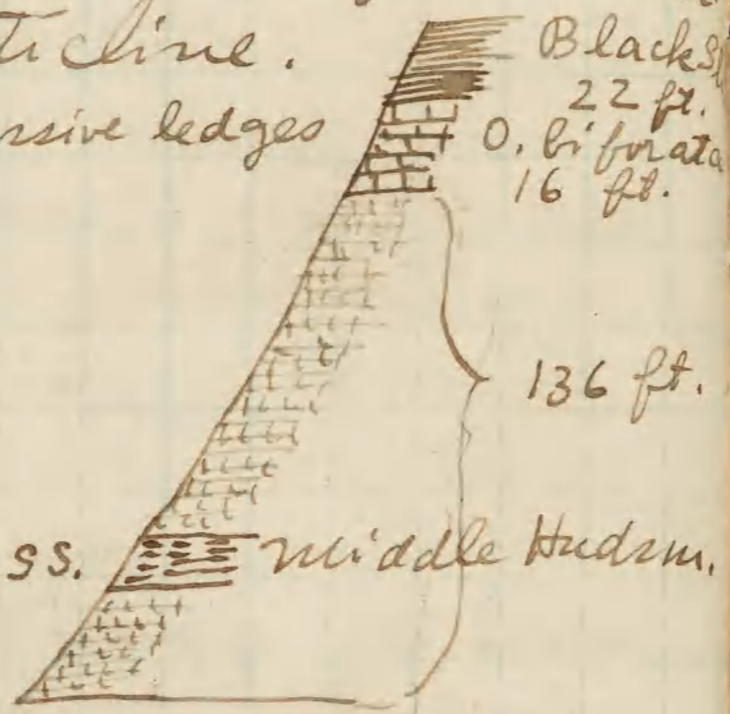 ticline.
ssive ledges
Black S
22 ft.
O. biforata
16 ft.
136 ft.
ss. Middle Hudson.